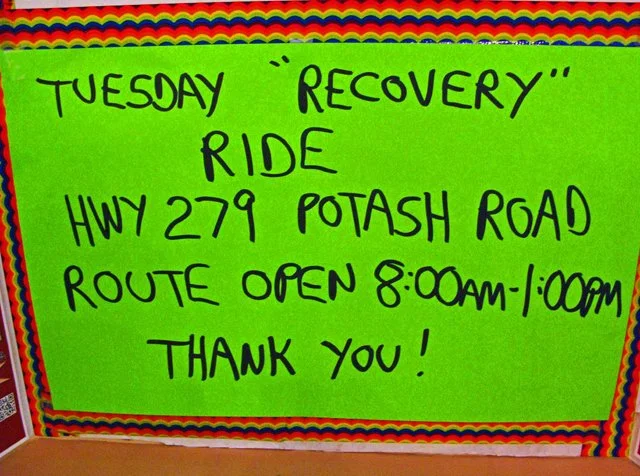 TUESDAY "RECOVERY"
RIDE
HWY 279 POTASH ROAD
ROUTE OPEN 8:00AM-1:00PM
THANK YOU!